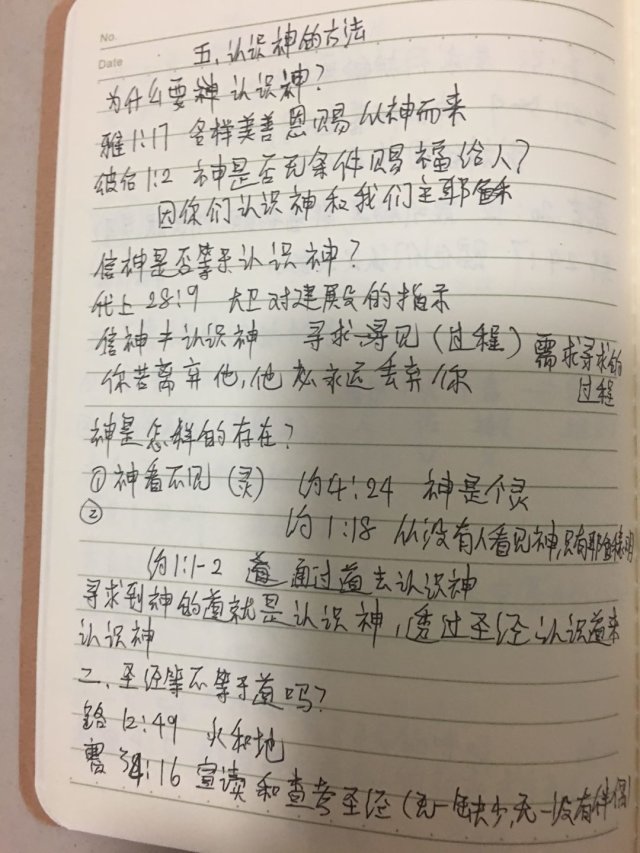 No.
Date
五、认识神的方法
为什么要神认识神?
雅1:17 各样美善恩赐从神而来
彼后1:2 神是否无条件赐福给人?
因你们认识神和我们主耶稣
信神是否等于认识神?
代上28:9 大卫对建殿的指示
信神≠认识神 寻求寻见(过程) 需求寻求的
过程
你若离弃他,他必永远丢弃你
神是怎样的存在?
① 神看不见(灵) 约4:24 神是个灵
②
约1:18 从没有人看见神,只有耶稣表明
约1:1-2 道 通过道去认识神
寻求到神的道就是认识神,透过圣经认识道来
认识神
二、圣经等不等于道吗?
路12:49 火和地
赛34:16 宣读和查考圣经(无一缺少,无一没有伴偶)